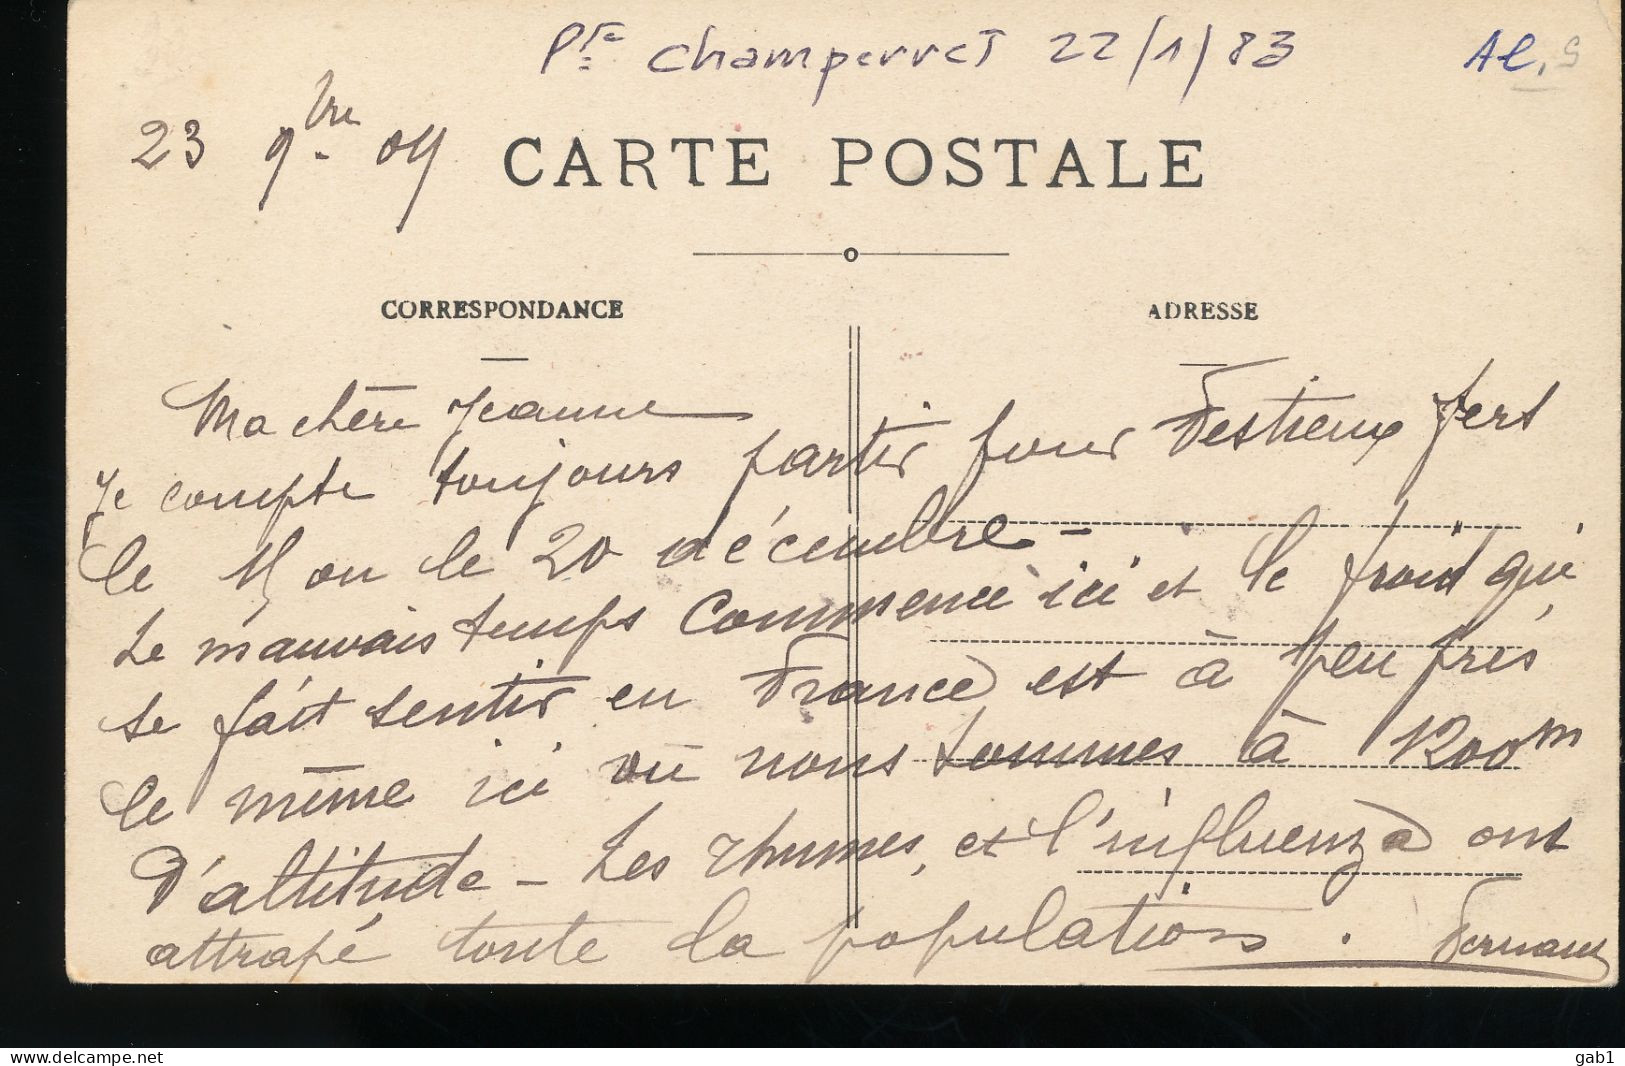 Pte Champerret 22/1/83
Al. S
23 9bre 09
CARTE POSTALE
CORRESPONDANCE
ADRESSE
Ma chère Jeanne
Je compte toujours partir pour Festieux fert
le 15 ou le 20 décembre -
Le mauvais temps commence ici et le froid qui
se fait sentir en France est à peu près
le même ici où nous sommes à 1200m
d'altitude - Les rhumes, et l'influenza ont
attrapé toute la population. Fernand
gab1